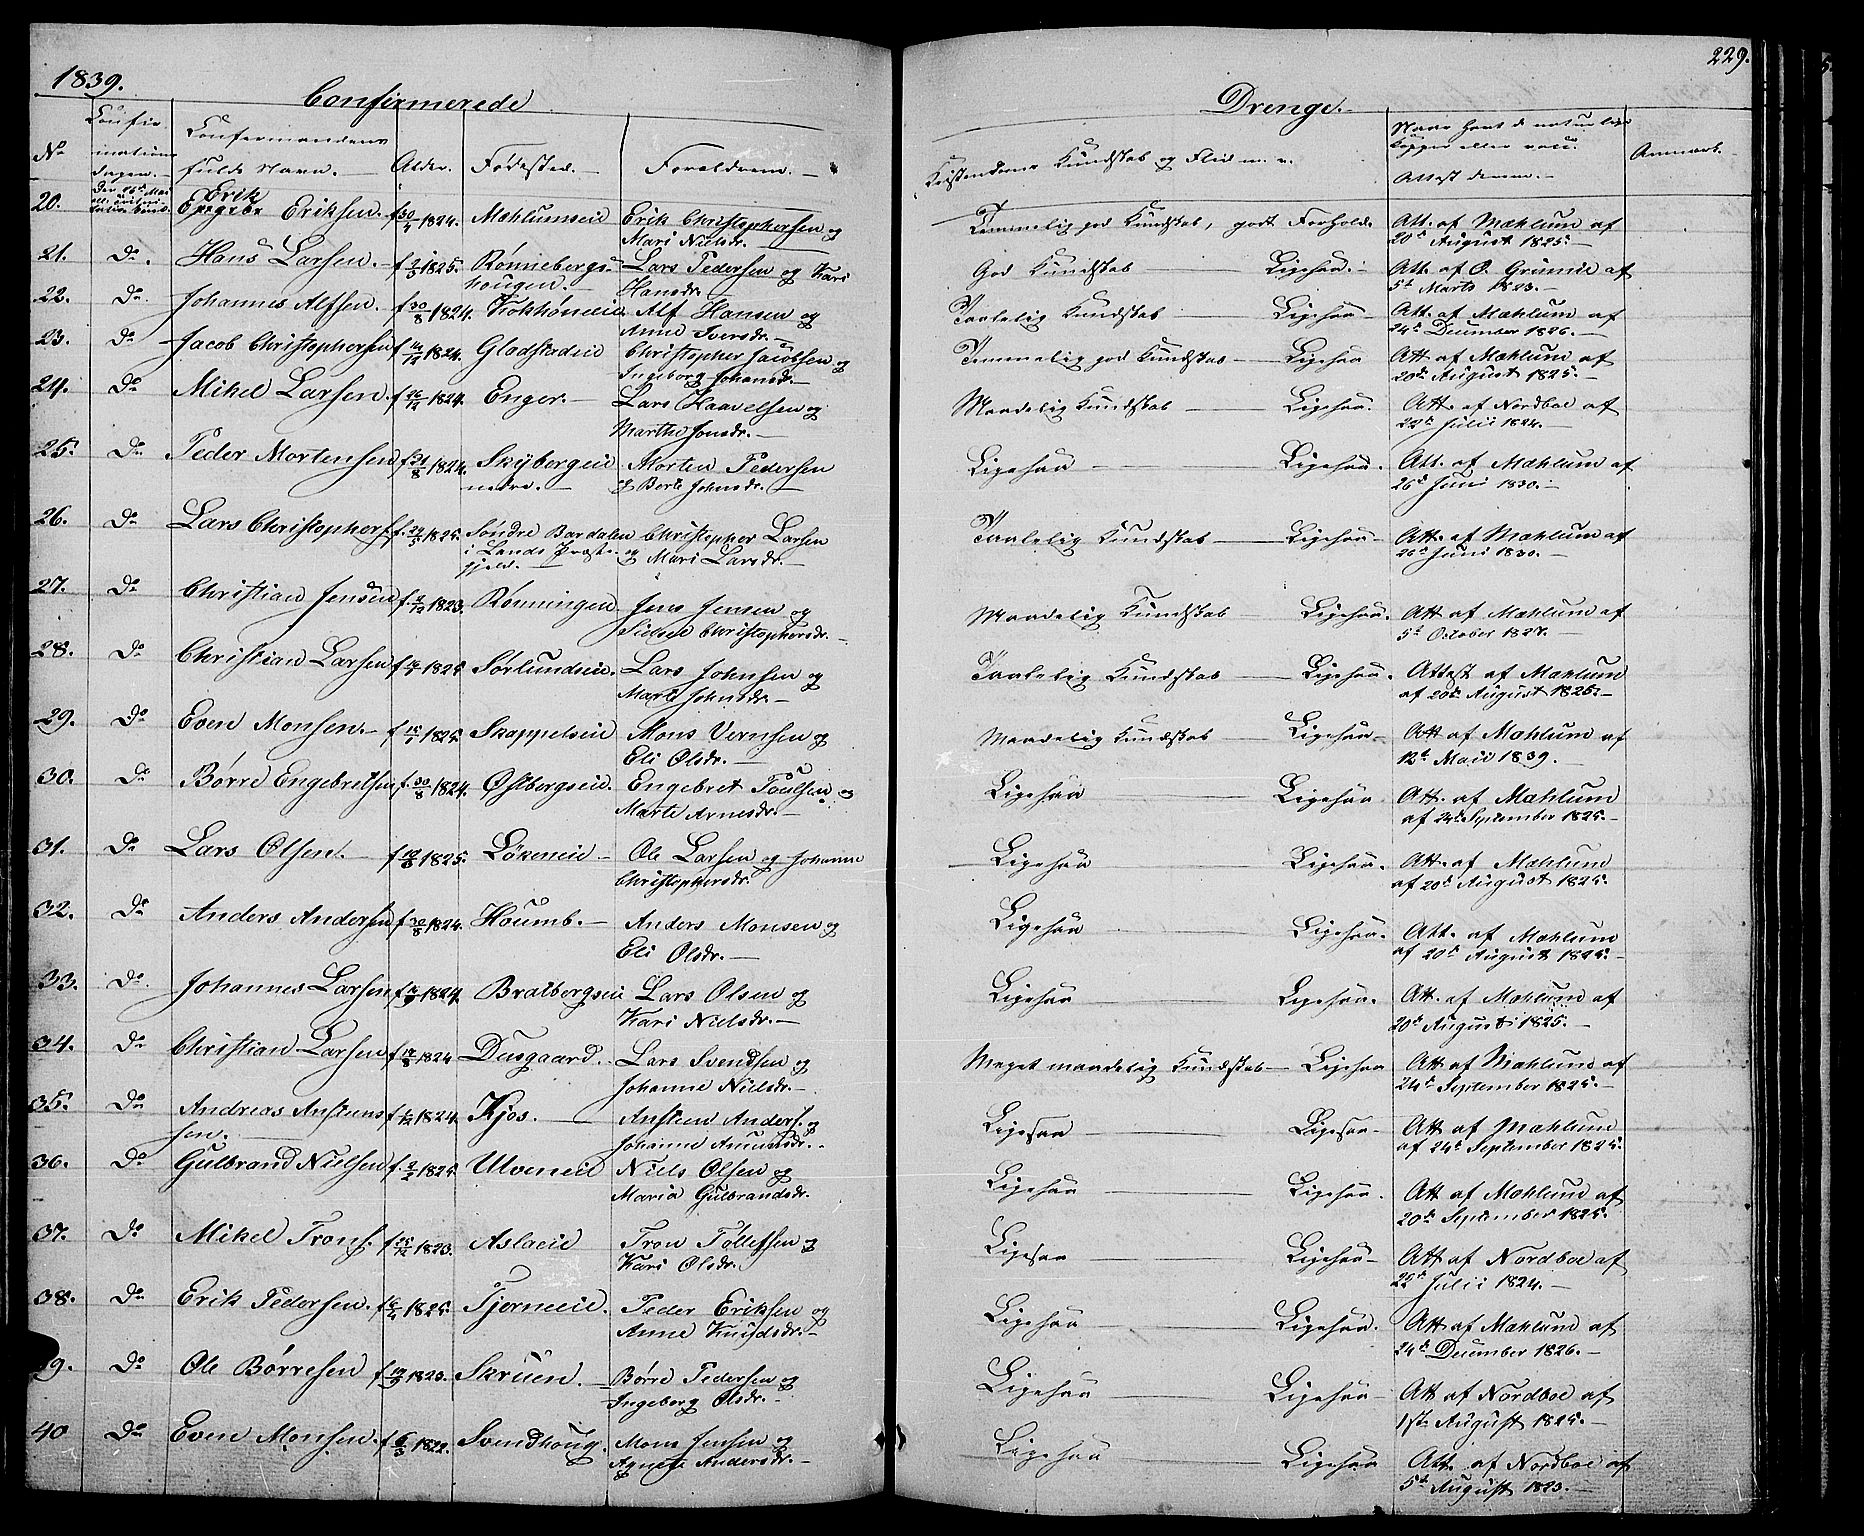 1839.
229.
Confirmerede
Drenge.
No
Confirmations Dagen.
Confirmandens fulde Navn.
Alder.
Fødested.
Forældrene.
Christendoms Kundskab og Flid m. v.
Naar havt de naturlige Kopper eller vacc. Attest derom.
Anmærk.
20. Erik Eriksen. f 1824. Mæhlumseie Erik Christophersen og Mari Nielsdr. Temmelig god Kundskab, godt Forhold. Att. af Mæhlum af 20de August 1825.
21. Do. Hans Larsen. f 2/3 1825. Rønnebergshougen. Lars Pedersen og Kari Hansdr. God Kundskab Ligesaa. Att. af O. Grimie af 5te Marts 1823.
22. Do Johannes Alfsen. f 30/8 1824. Kokhøneie Alf Hansen og Anne Iversdr. Taalelig Kundskab Ligesaa Att. af Mæhlum af 24de December 1826.
23. Do Jacob Christophersen f 1824. Gladstadeie Christopher Jacobsen og Ingeborg Johansdr. Temmelig god Kundskab Ligesaa Att. af Mæhlum af 20de August 1825.
24. Do Mikel Larsen. f 26/12 1824. Enger. Lars Haavelsen og Marthe Jonsdr. Maadelig Kundskab Ligesaa. Att. af Nordboe af 22de Julii 1824.
25. Do Peder Mortensen f. 31/8 1824. Skybergeie nedre. Morten Pedersen og Berte Johnsdr. Ligesaa Ligesaa. Att. af Mæhlum af 26de Juni 1830.
26. Do Lars Christophers. f. 24/5 1825. Søndre Bardalen i Lands Præstegjeld. Christopher Larsen og Mari Larsdr. Taalelig Kundskab Ligesaa Att. af Mæhlum af 26de Juni 1830.
27. Do Christian Jensen f. 2/12 1823. Rønningen Jens Jensen og Sidsel Christophersdr. Maadelig Kundskab Ligesaa. Att. af Mæhlum af 5te October 1827.
28. Do Christian Larsen f 1825 Sørlundseie. Lars Johnsen og Marte Johnsdr. Taalelig Kundskab Ligesaa. Attest af Mæhlum af 20de August 1825.
29. Do Even Monsen. f 15/1 1825. Skappelseie Mons Vernsen og Eli Olsdr. Maadelig Kundskab Ligesaa Att. af Mæhlum af 12te Maii 1839.
30. Do Børre Engebretsen f. 30/8 1824. Østbergseie. Engebret Poulsen og Marte Arnesdr. Ligesaa Ligesaa Att. af Mæhlum af 24de September 1825.
31. Do Lars Olsen. f 1825. Løkeneie Ole Larsen og Johanne Christophersdr. Ligesaa Ligesaa. Att. af Mæhlum af 20de August 1825.
32. Do Anders Andersen f 30/8 1824. Houmb. Anders Monsen og Eli Olsdr. Ligesaa Ligesaa. Att. af Mæhlum af 20de August 1825.
33. Do. Johannes Larsen f 1824. Bratbergseie Lars Olsen og Kari Nielsdr. Ligesaa Ligesaa. Att. af Mæhlum af 20de August 1825.
34. Do Christian Larsen f 12/8 1824 Dusgaard. Lars Svendsen og Johanne Nielsdr. Meget maadelig Kundskab Ligesaa Att. af Mæhlum af 24de September 1825.
35. Do Andreas Anstensen. f 1824. Kjos. Ansten Anders. og Johanne Amundsdr. Ligesaa Ligesaa Att af Mæhlum af 24de September 1825.
36. Do Gulbrand Nielsen f. 2/2 1825. Ulveneie Niels Olsen og Maria Gulbrandsdr. Ligesaa Ligesaa. Att af Mæhlum af 20de September 1825.
37. Do Mikel Trons. f 25/12 1823. Aslaeie Tron Tollefsen og Kari Olsdr. Ligesaa Ligesaa Att. af Nordboe af 22de Julii 1824.
38. Do Erik Pedersen. f 1825. Tjerneeie. Peder Eriksen og Anne Knudsdr. Ligesaa Ligesaa. Att af Mæhlum af 24de December 1826.
39. Do Ole Børresen f 1823. Skruen. Børre Pedersen og Ingeborg Olsdr. Ligesaa Ligesaa Att af Nordboe af 1ste August 1825.
40 Do Even Monsen. f 6/3 1822. Svendhoug. Mons Jensen og Agnete Andersdr. Ligesaa Ligesaa Att. af Nordboe af 5te August 1823.